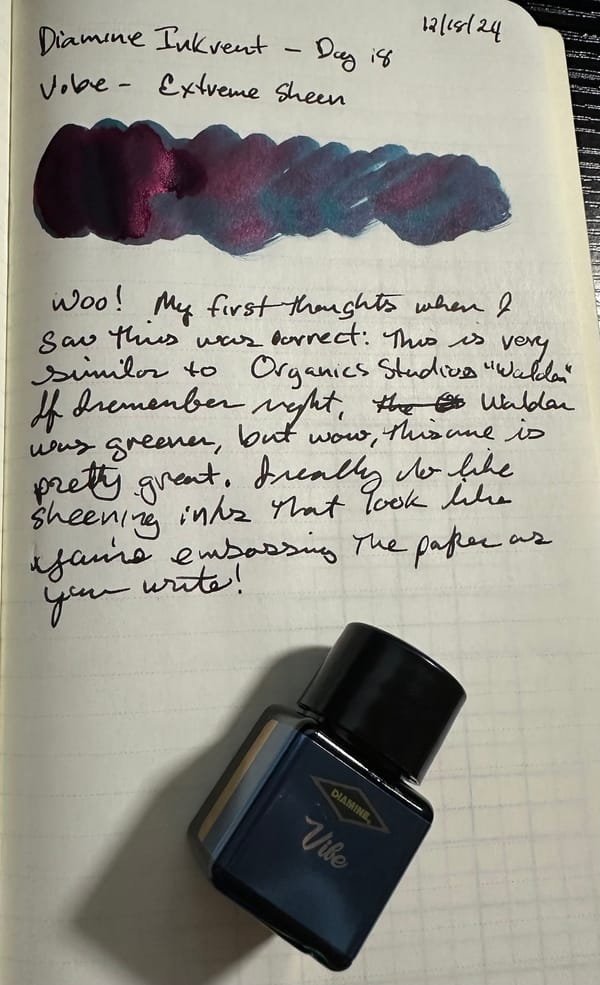 12/18/24
Diamine Inkvent - Day 18
Vibe - Extreme Sheen
Woo! My first thoughts when I
saw this was correct: This is very
similar to Organics Studios "Walden"
If I remember right, Walden
was greener, but wow, this one is
pretty great. I really do like
sheening inks that look like
you're embossing the paper as
you write!
DIAMINE
Vibe